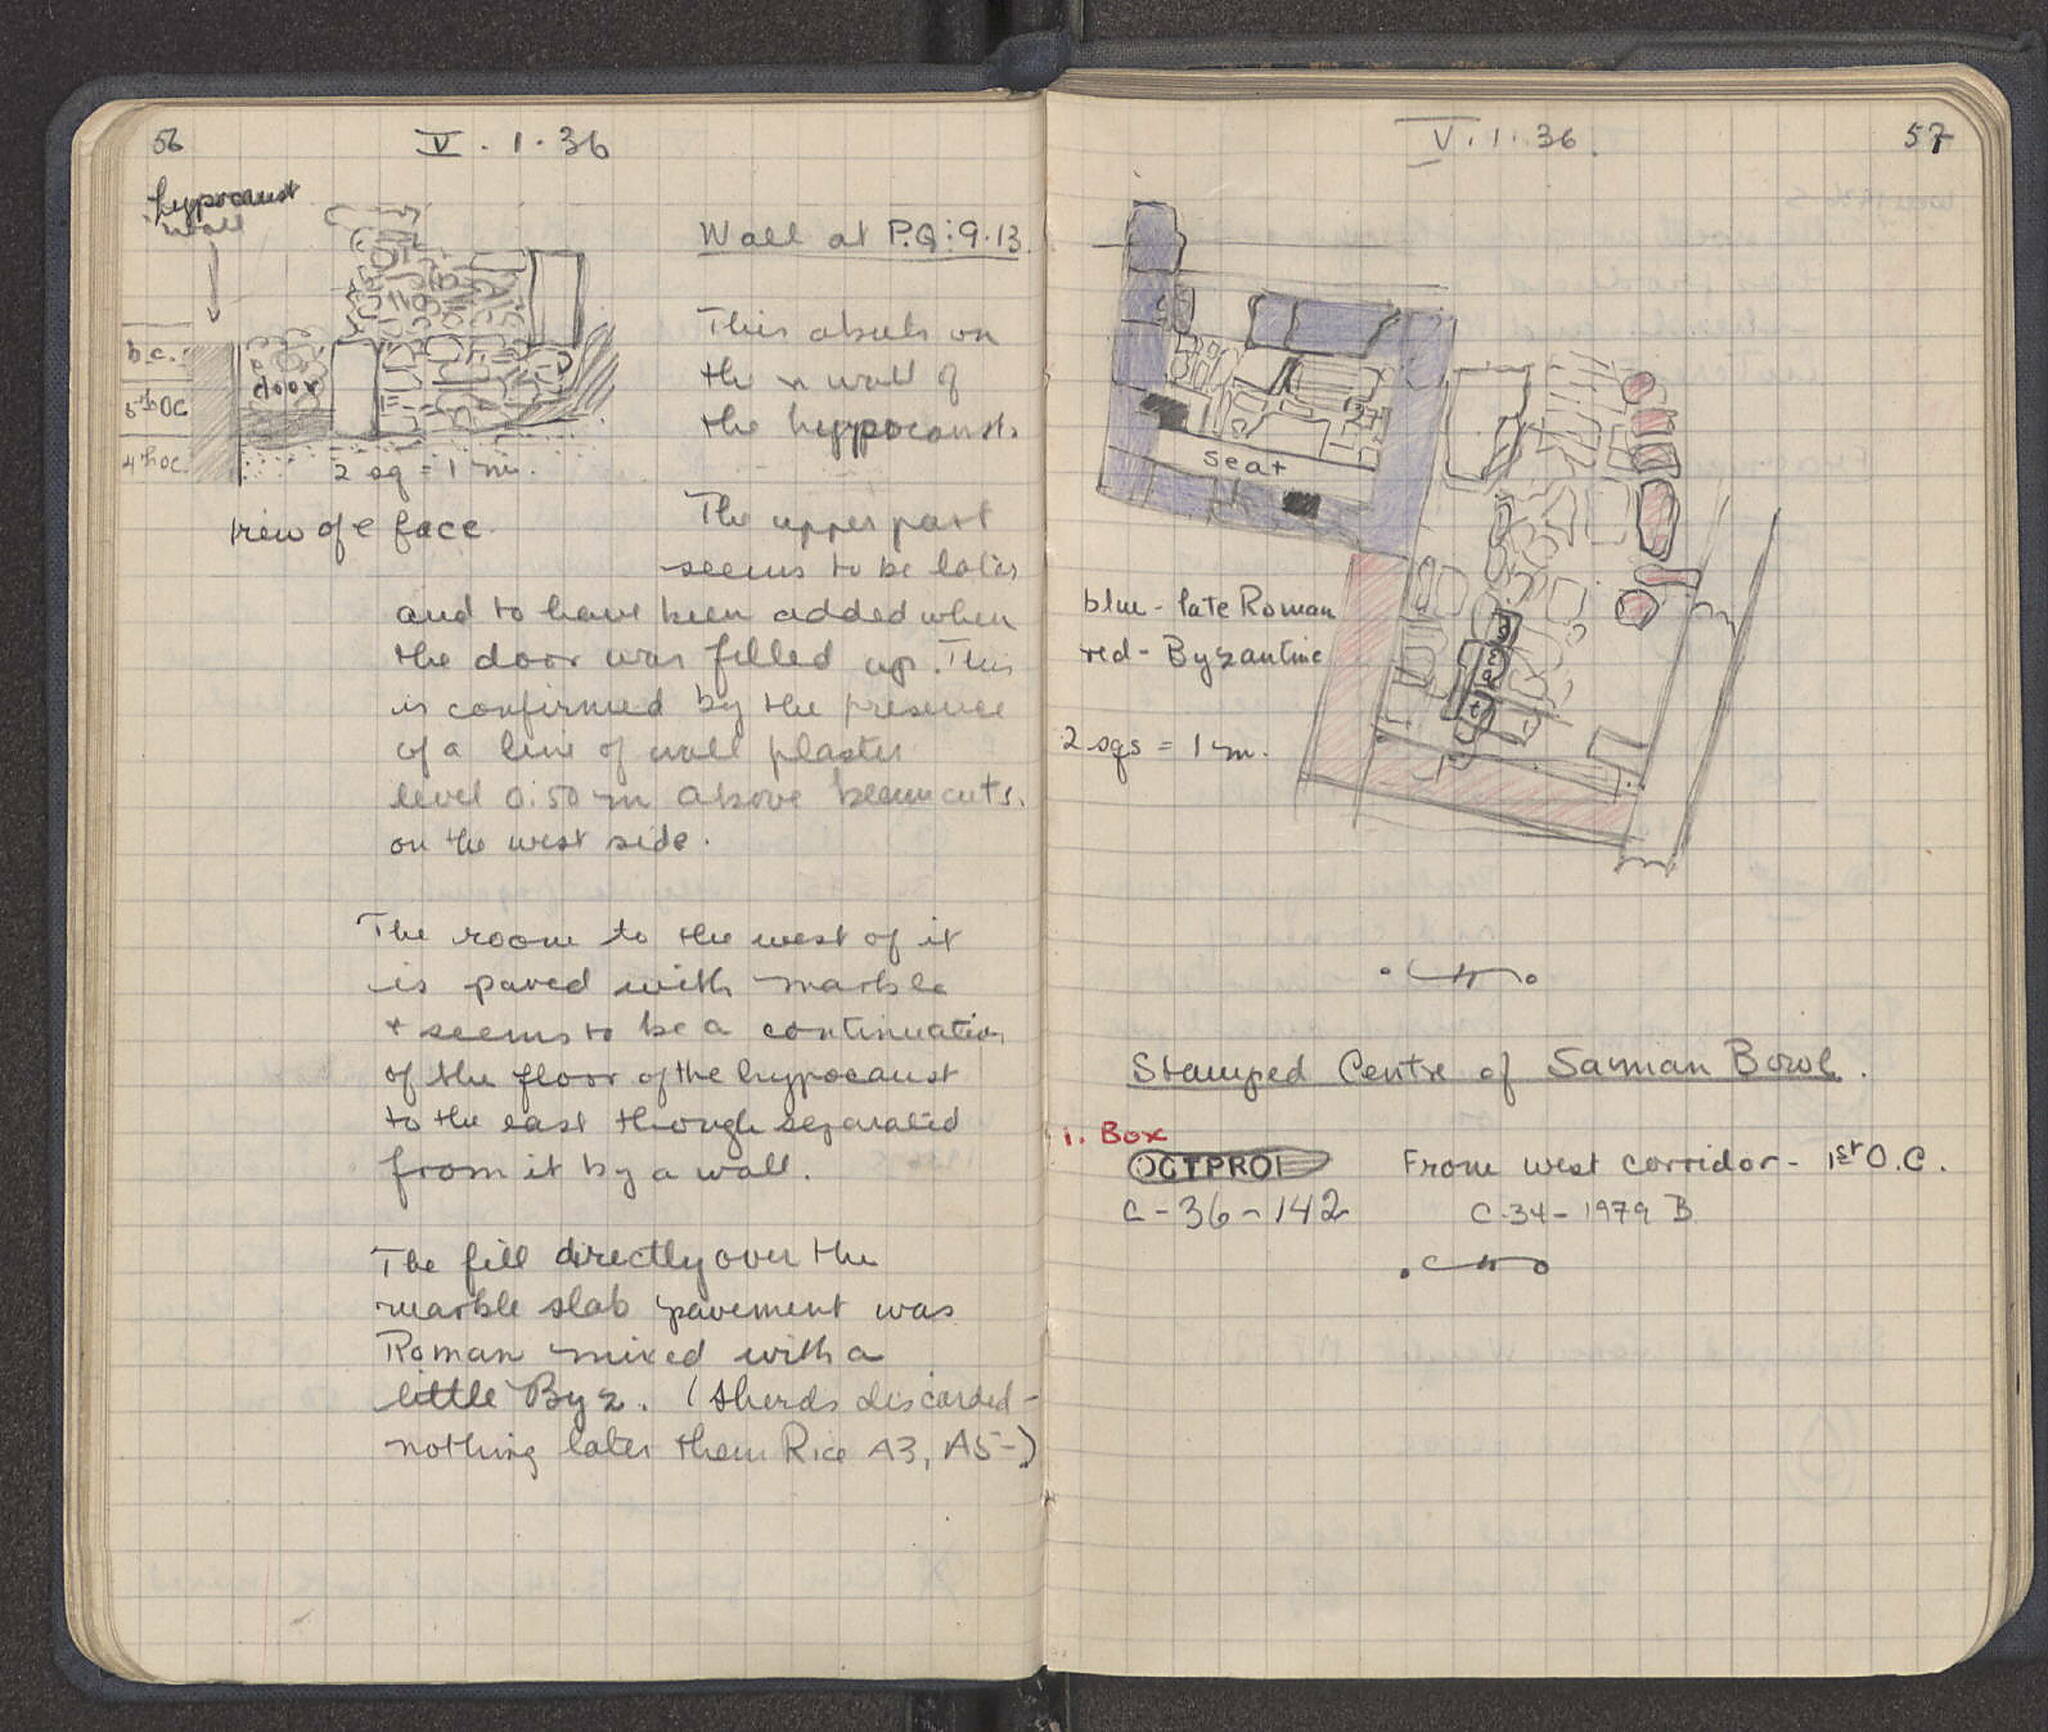 56
V. 1. 36
hypocaust
wall
Wall at P.Q:9.13.
This abuts on
the n wall of
the hypocaust.
b c.
door
5th OC
4th OC
2 sq = 1 m.
view of e face
The upper part
seems to be later
and to have been added when
the door was filled up. This
is confirmed by the presence
of a line of wall plaster
level 0.50 m above beam cuts.
on the west side.
The room to the west of it
is paved with marble
+ seems to be a continuation
of the floor of the hypocaust
to the east though separated
from it by a wall.
The fill directly over the
marble slab pavement was
Roman mixed with a
little Byz. (sherds discarded -
nothing later then Rice A3, A5-)
V. 1. 36.
57
seat
blue - late Roman
red - Byzantine
2 sqs = 1 m.
Stamped Centre of Samian Bowl.
1. Box
OCTPROI From west corridor - 1st O.C.
C-36-142 C-34-1979 B